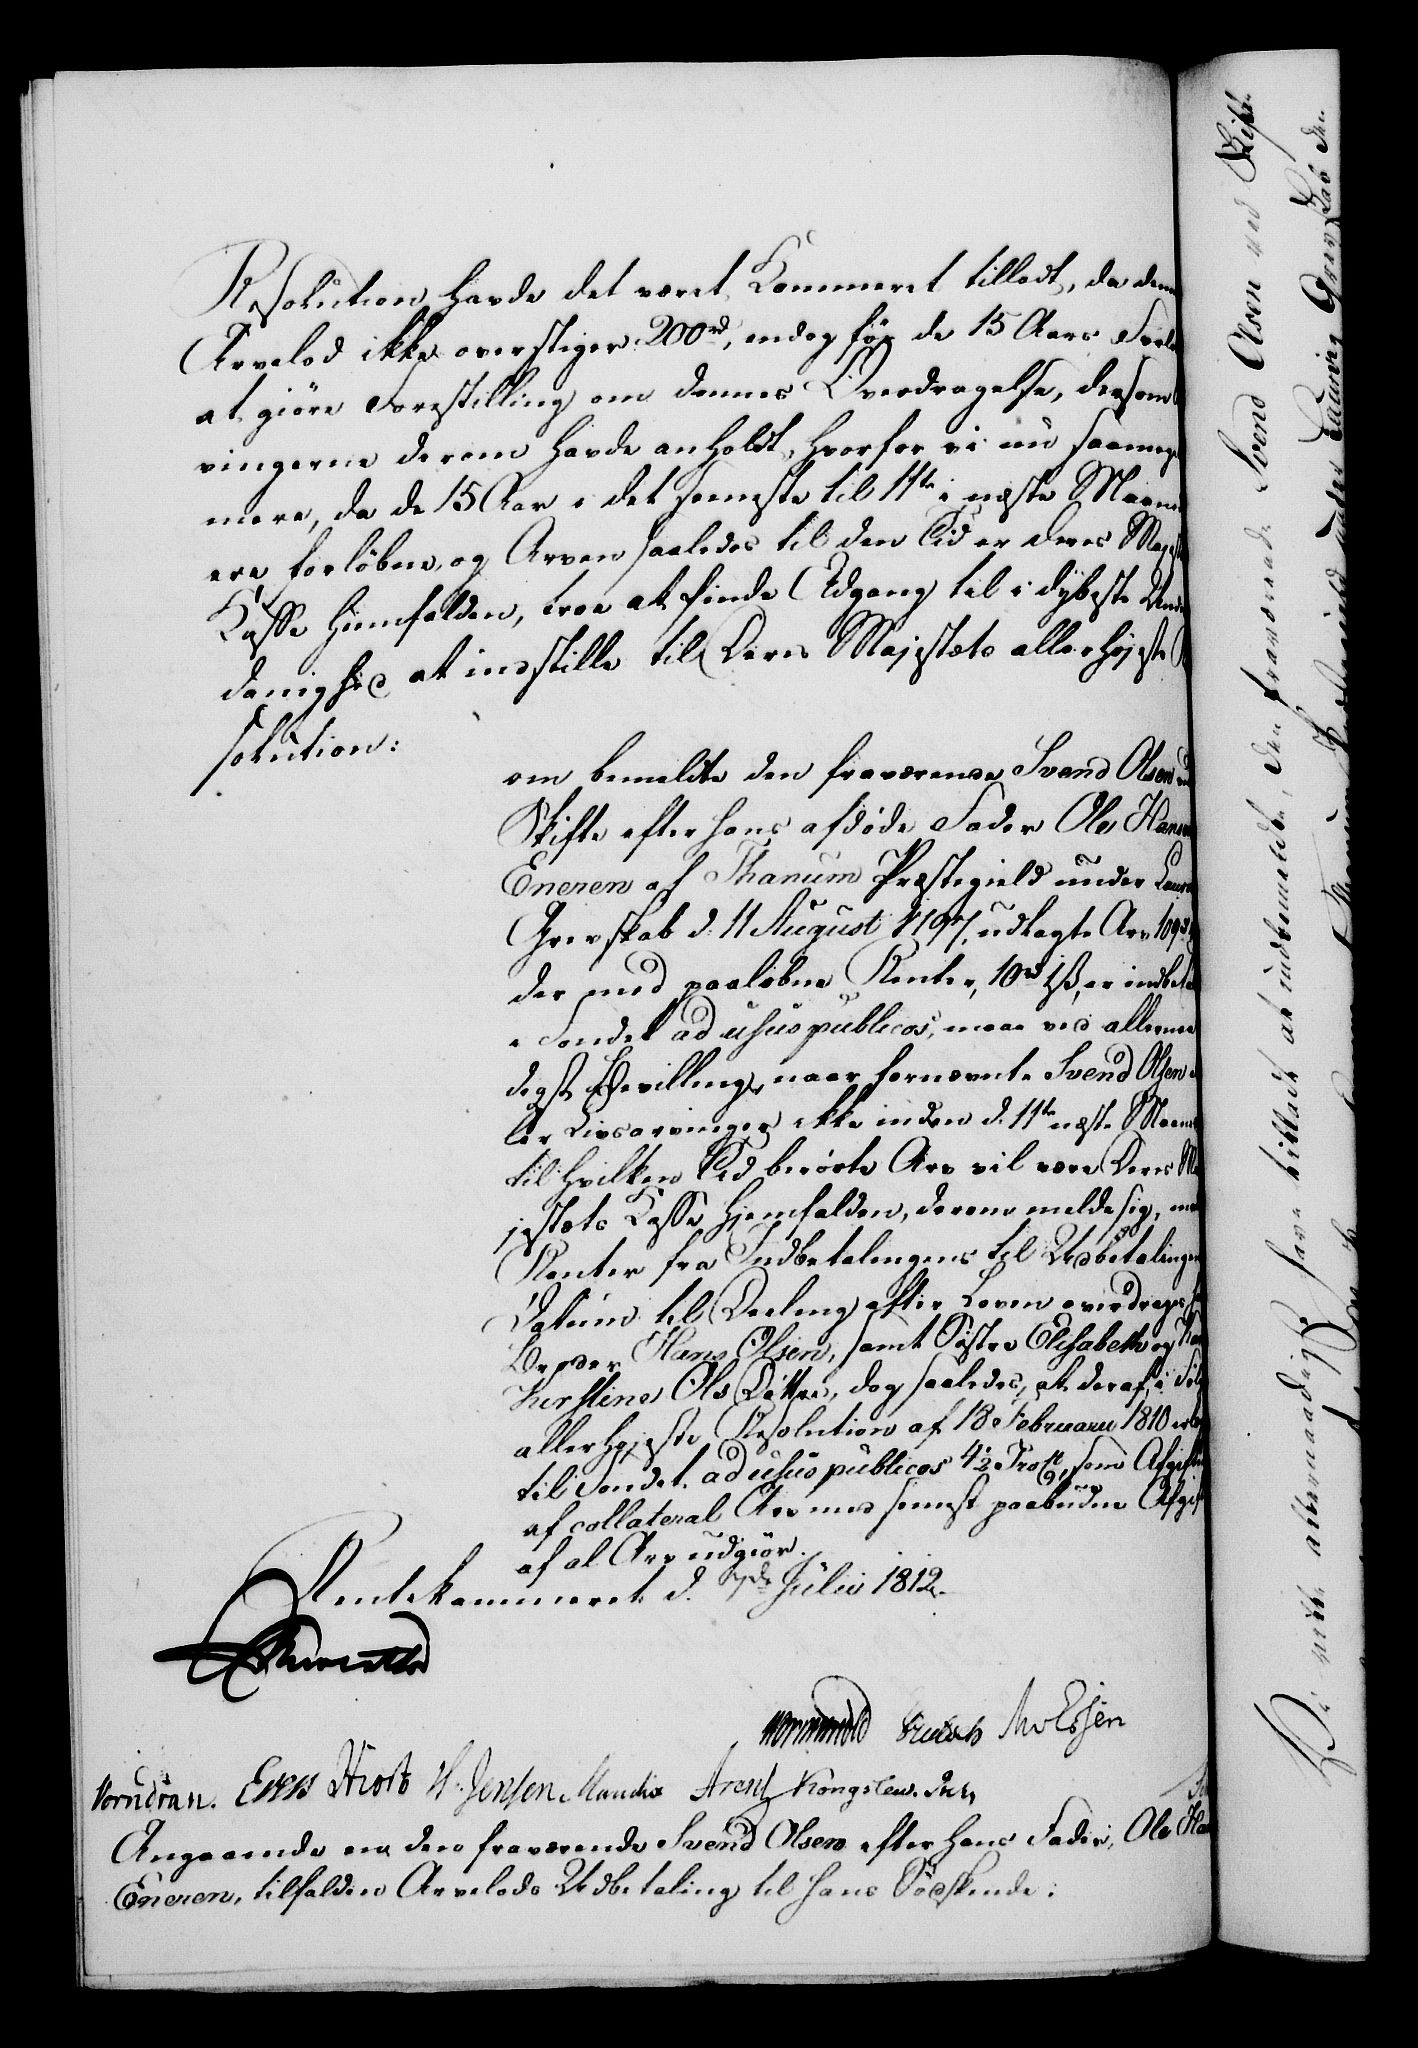 Resolution havde det været Kammeret tilladt, da denne
Arvelod ikke overstiger 200 rd, endog før de 15 Aars Forløb
at giöre Forestilling om dennes Overdragelse, dersom
vingerne derom havde anholdt, hvorfor vi nu saameget
mere, da de 15 Aar i det seeneste til 11te i næste Maaned
ere forløbne, og Arven saaledes til den Tid er Deres Majestæts
Kasse hiemfalden, troe at finde Adgang til i dybeste Under
danighed at indstille til Deres Majestæts allerhøjeste Re
solution:
om bemeldte den fraværende Svend Olsen ved
Skifte efter hans afdøde Fader Ole Hansen
Eneren af Thanum Præstegield under Laurvig
Grevskab d. 11 August 1797, udlagte Arv 109 rd
der med paaløbne Renter, 10 rd ß, er indbetalt
i Fondet ad usus publicos, maae ved allernaa
digst Bevilling, naar fornævnte Svend Olsen el
ler Livsarvinger ikke inden d. 11te næste Maaned
til hvilken Tid berørte Arv vil være Deres Ma
jestæts Kasse hjemfalden, derom melde sig, med
Renter fra Indbetalingens til Udbetalingens
Datum til Deeling efter Loven overdrages hans
Broder Hans Olsen, samt Søstre Elisabeth og
Kirstine Ols Døttre, dog saaledes, at deraf, i Følge
allerhøjeste Resolution af 18 Februarii 1810 erlægges
til Fondet ad usus publicos 4½ Procto, som Afgiften
af collateral Arv med senest paabudne Afgift
af al Arv udgiör.
Rentekammeret d. 7de Julii 1812.
Wormskiold Knudsen
Vorndran. Hiort H. Jensen Mandix Arent Kongslew.
Angaaende en den fraværende Svend Olsen efter hans Fader, Ole Han
Eneren, tilfalden Arvelods Udbetaling til hans Sødskende.
Vi vide allernaadigst have tilladt at indbemeldte, den fraværende Svend Olsen ved Skifte
under Laurvig Grevskab den